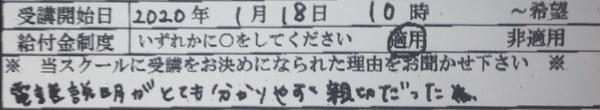 受講開始日 2020年 1月 18日 10時 ～希望
給付金制度 いずれかに○をしてください 適用 非適用
※ 当スクールに受講をお決めになられた理由をお聞かせ下さい ※
電話説明がとても分かりやすく親切だった為。